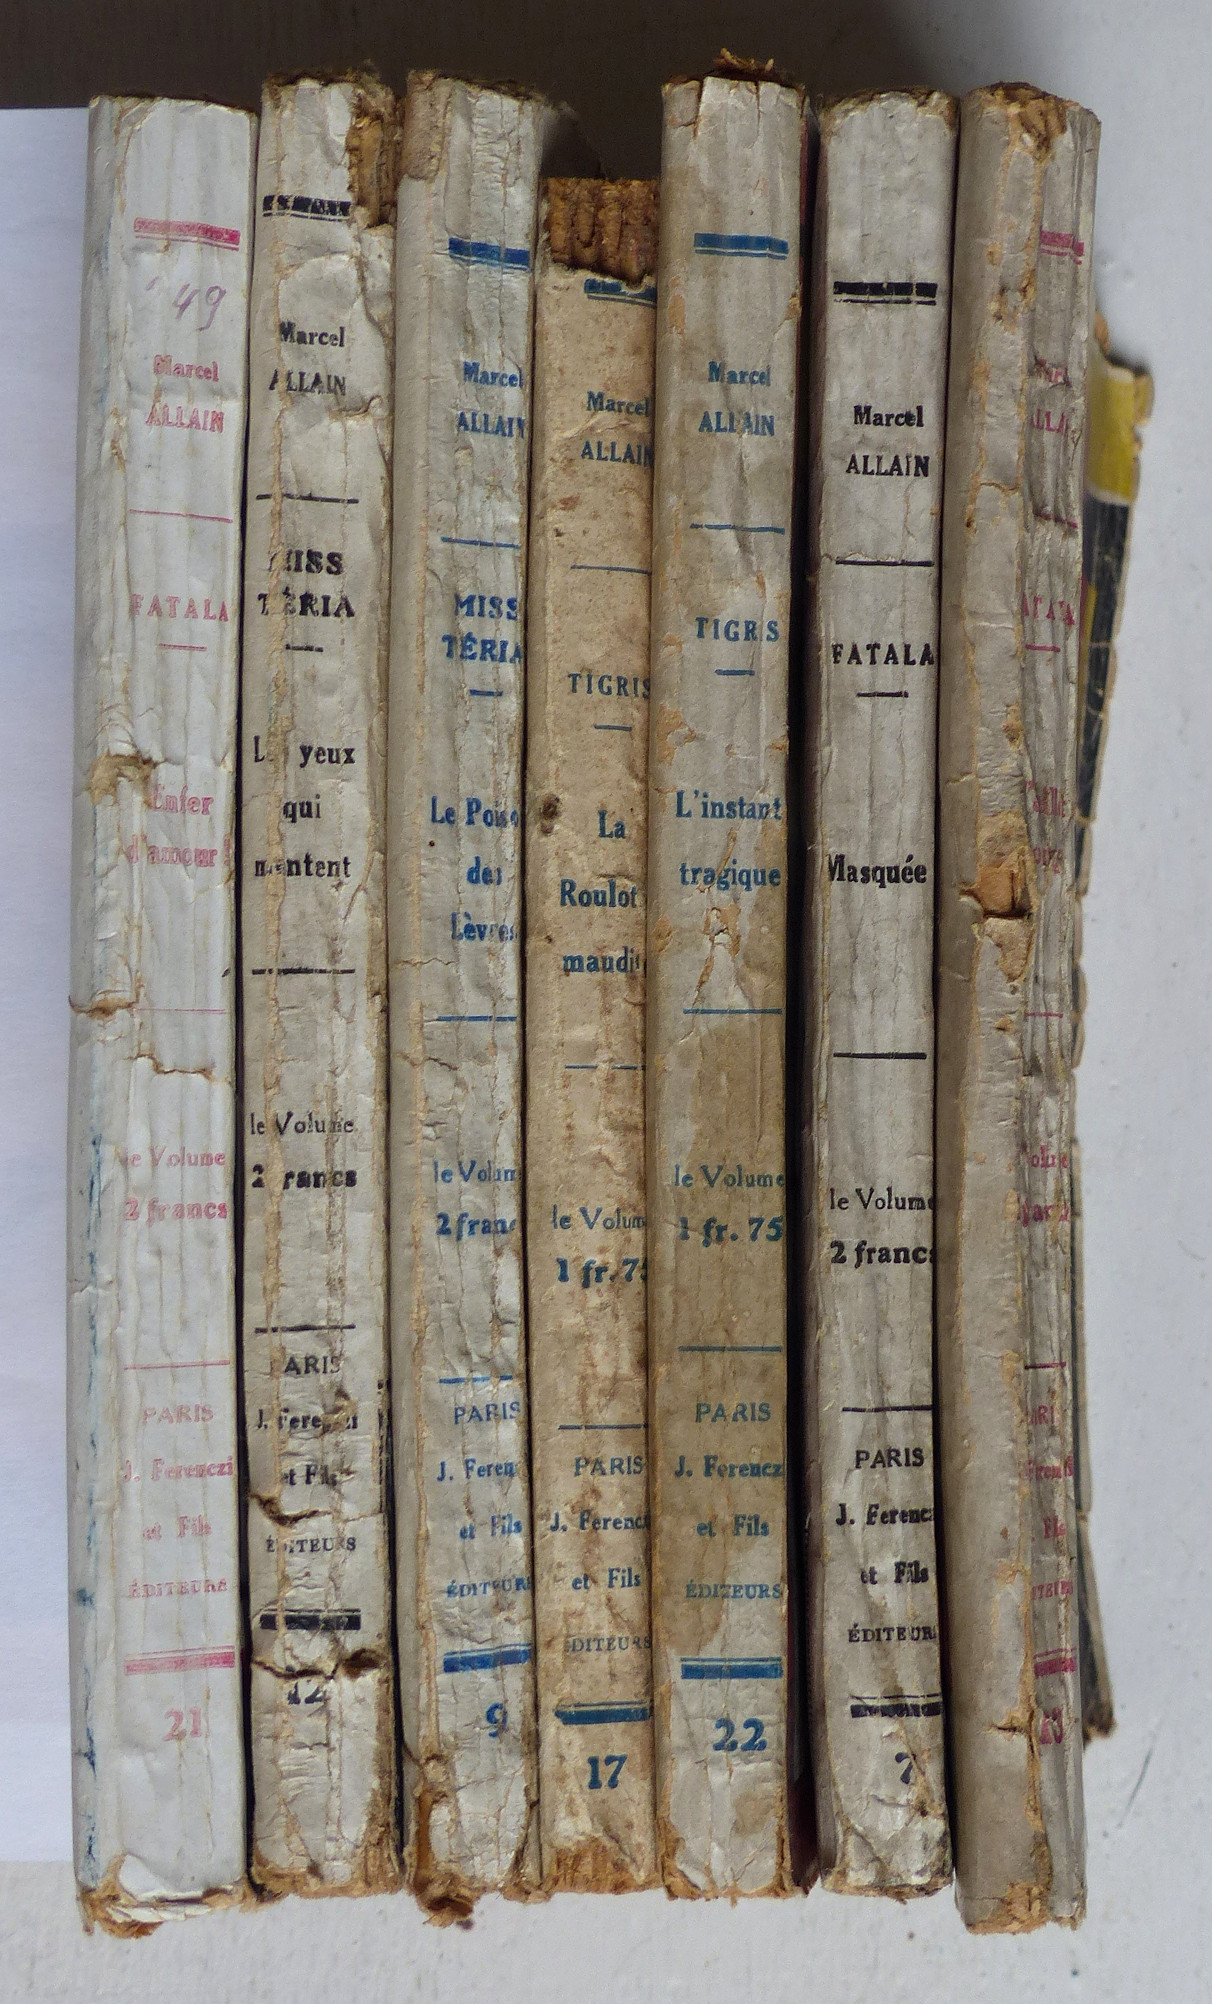 49
Marcel
ALLAIN
FATALA
Enfer
d'amour !
le Volume
2 francs
PARIS
J. Ferenczi
et Fils
ÉDITEURS
21
Marcel
ALLAIN
MISS
TÉRIA
yeux
qui
mentent
le Volume
2 francs
PARIS
J. Ferenczi
et Fils
ÉDITEURS
12
Marcel
ALLAIN
MISS
TÉRIA
Le Poiso
des
Lèvres
le Volum
2 franc
PARIS
J. Feren
et Fils
ÉDITEURS
9
Marcel
ALLAIN
TIGRIS
La
Roulot
maudi
le Volum
1 fr. 75
PARIS
J. Ferencz
et Fils
ÉDITEURS
17
Marcel
ALLAIN
TIGRIS
L'instant
tragique
le Volume
1 fr. 75
PARIS
J. Ferencz
et Fils
ÉDITEURS
22
Marcel
ALLAIN
FATALA
Masquée
le Volume
2 francs
PARIS
J. Ferencz
et Fils
ÉDITEURS
7
ALLA
ATALA
Fils